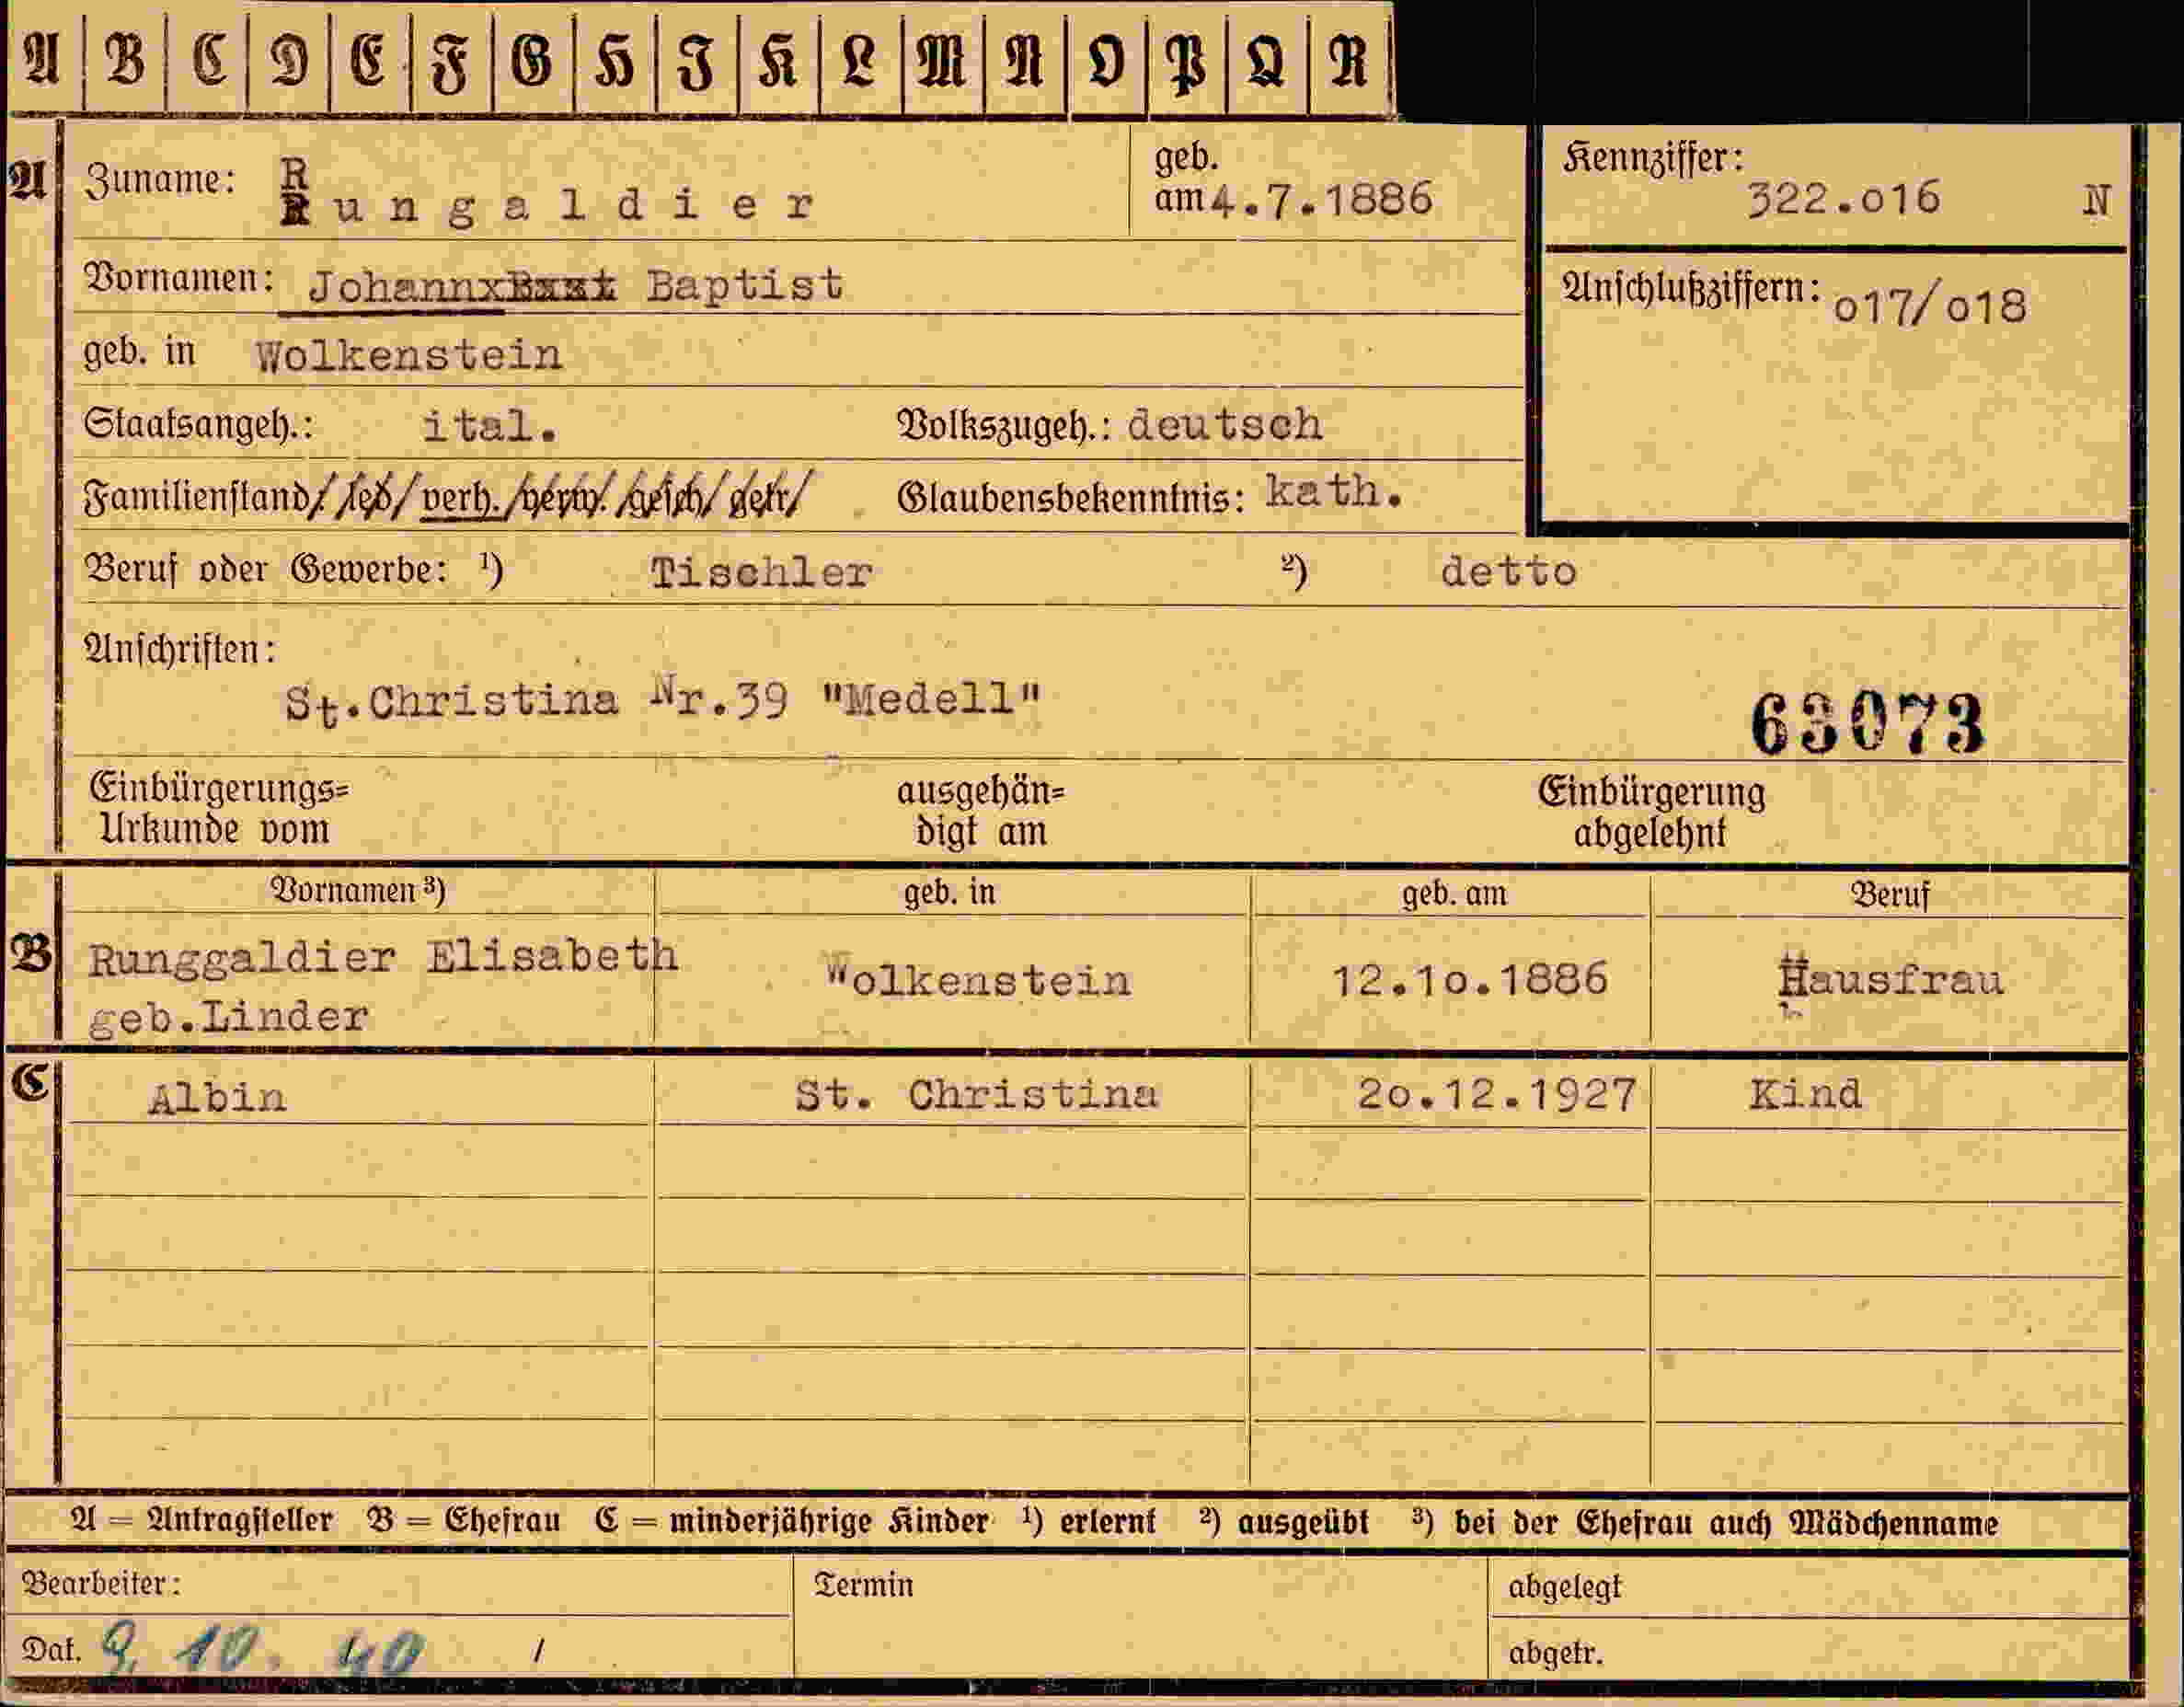 A B C D E F G H I K L M N O P Q R
A Zuname: R
Rungaldier
geb.
am 4.7.1886
Kennziffer:
322.o16 N
Vornamen: Johann Baptist
Anschlußziffern: o17/o18
geb. in Wolkenstein
Staatsangeh.: ital. Volkszugeh.: deutsch
Familienstand/ led/ verh./verw./gesch/getr/ Glaubensbekenntnis: kath.
Beruf oder Gewerbe: ¹) Tischler ²) detto
Anschriften:
St.Christina Nr.39 "Medell"
63073
Einbürgerungs=
Urkunde vom
ausgehän=
digt am
Einbürgerung
abgelehnt
Vornamen ³) geb. in geb. am Beruf
B Runggaldier Elisabeth
geb.Linder
Wolkenstein 12.1o.1886 Hausfrau
C Albin St. Christina 2o.12.1927 Kind
A = Antragsteller B = Ehefrau C = minderjährige Kinder ¹) erlernt ²) ausgeübt ³) bei der Ehefrau auch Mädchenname
Bearbeiter: Termin abgelegt
Dat. 9. 10. 40 / abgetr.